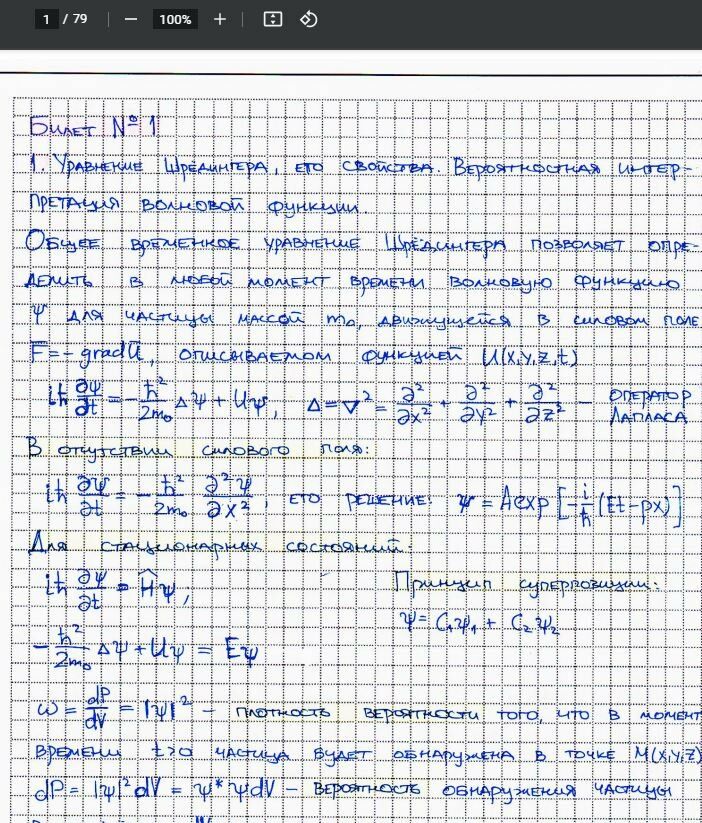 1 / 79 — 100% +
Билет № 1
1. Уравнение Шрёдингера, его свойства. Вероятностная интер-
претация волновой функции.
Общее временное уравнение Шрёдингера позволяет опре-
делить в любой момент времени волновую функцию
Ψ для частицы массой m₀, движущейся в силовом поле
F̅ = - grad U, описываемом функцией U(x,y,z,t)
iħ ∂ψ/∂t = - ħ²/2m₀ Δψ + Uψ, Δ = ∇² = ∂²/∂x² + ∂²/∂y² + ∂²/∂z² - оператор Лапласа
В отсутствии силового поля:
iħ ∂ψ/∂t = - ħ²/2m₀ ∂²ψ/∂x², его решение: ψ = A exp [-i/ħ (Et-px)]
Для стационарных состояний:
iħ ∂ψ/∂t = Ĥψ,
Принцип суперпозиции:
ψ = C₁ψ₁ + C₂ψ₂
- ħ²/2m₀ Δψ + Uψ = Eψ
ω = dP/dV = |ψ|² - плотность вероятности того, что в момент
времени t>0 частица будет обнаружена в точке M(x,y,z)
dP = |ψ|² dV = ψ* ψ dV - вероятность обнаружения частицы